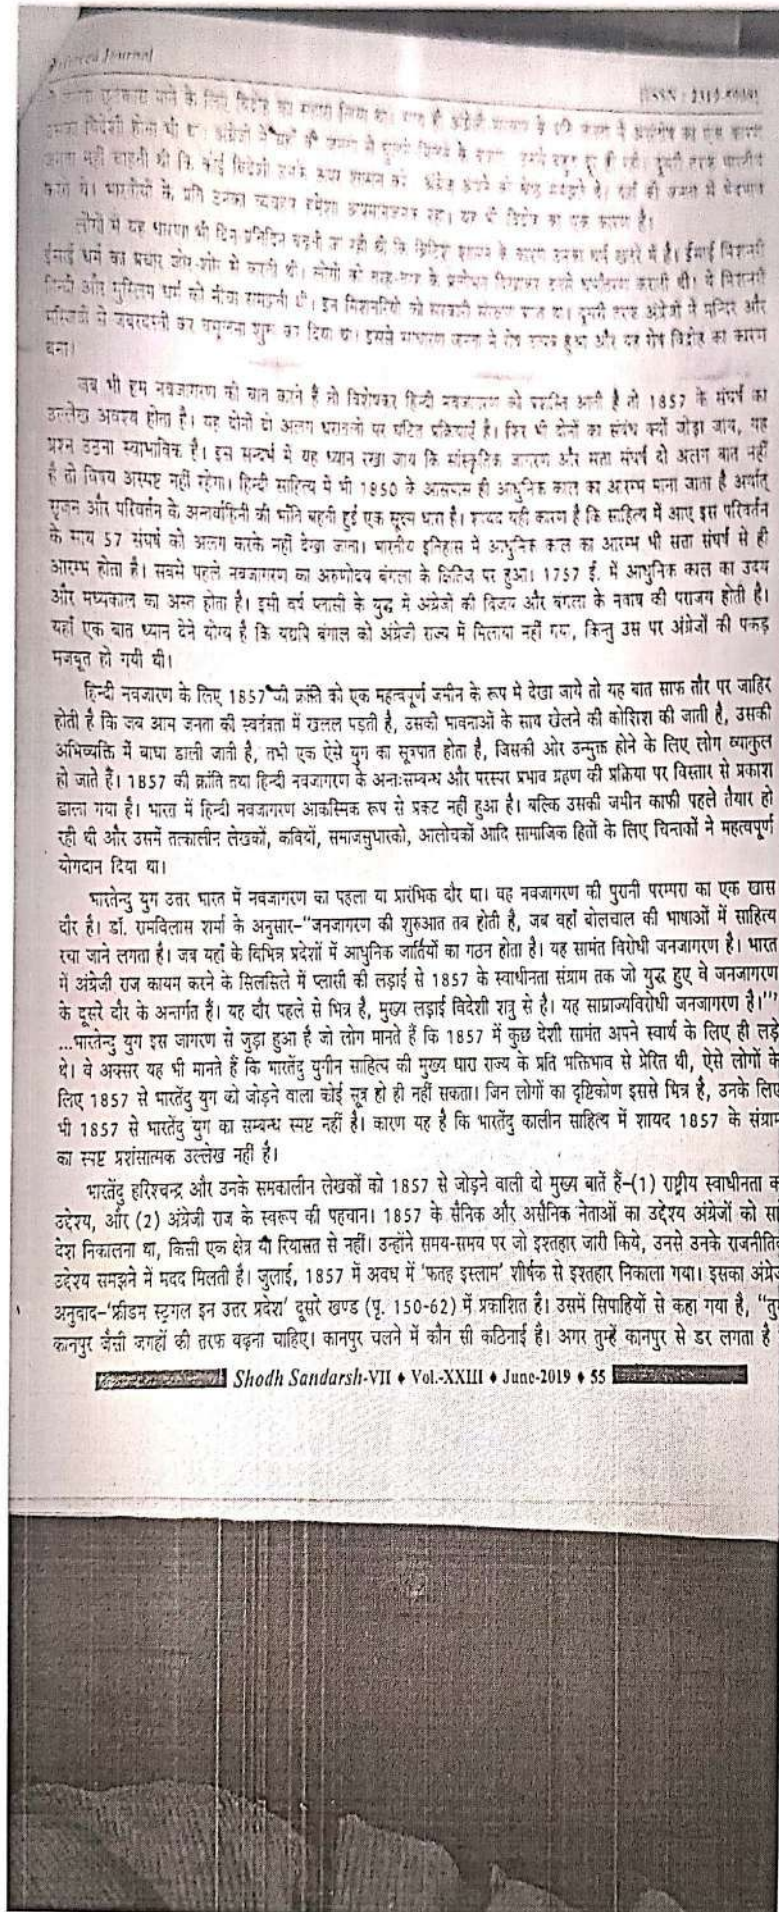 Journal
ISSN : 2319-5908
के लिए विद्रोह का सहारा लिया था। साथ ही अंग्रेजी शासन के प्रति जनता में असंतोष का एक कारण
उनका विदेशी होना भी था। अंग्रेजों ने यहाँ की जनता से
जनता नहीं चाहती थी कि कोई विदेशी उनके ऊपर शासन करे।
करते थे। भारतीयों के, प्रति उनका व्यवहार हमेशा अपमानजनक रहा। यह भी विद्रोह का एक कारण है।
लोगों में यह धारणा भी दिन प्रतिदिन बढ़ती जा रही थी कि ब्रिटिश शासन के कारण उनका धर्म खतरे में है। ईसाई मिशनरी
ईसाई धर्म का प्रचार जोर-शोर से करती थी। लोगों को तरह-तरह के प्रलोभन दिखाकर उनसे धर्मांतरण कराती थी। ये मिशनरी
हिन्दी और मुस्लिम धर्म को नीचा समझती थी। इन मिशनरियों को सरकारी संरक्षण प्राप्त था। दूसरी तरफ अंग्रेजों ने मन्दिर और
मस्जिदों से जबरदस्ती कर वसूलना शुरू कर दिया था। इससे साधारण जनता में रोष उत्पन्न हुआ और यह रोष विद्रोह का कारण
बना।
जब भी हम नवजागरण की बात करते हैं तो विशेषकर हिन्दी नवजागरण की आती है तो 1857 के संघर्ष का
उल्लेख अवश्य होता है। यह दोनों दो अलग धरातलों पर घटित प्रक्रियाएँ है। फिर भी दोनों का संबंध क्यों जोड़ा जाय, यह
प्रश्न उठना स्वाभाविक है। इस सन्दर्भ में यह ध्यान रखा जाय कि सांस्कृतिक जागरण और सता संघर्ष दो अलग बात नहीं
है तो विषय अस्पष्ट नहीं रहेगा। हिन्दी साहित्य में भी 1850 के आसपास ही आधुनिक काल का आरम्भ माना जाता है अर्थात्
सृजन और परिवर्तन के अन्तर्वाहिनी की भाँति बहती हुई एक सूक्ष्म धारा है। शायद यही कारण है कि साहित्य में आए इस परिवर्तन
के साथ 57 संघर्ष को अलग करके नहीं देखा जाता। भारतीय इतिहास में आधुनिक काल का आरम्भ भी सता संघर्ष से ही
आरम्भ होता है। सबसे पहले नवजागरण का अरुणोदय बंगला के क्षितिज पर हुआ। 1757 ई. में आधुनिक काल का उदय
और मध्यकाल का अस्त होता है। इसी वर्ष प्लासी के युद्ध में अंग्रेजों की विजय और बंगला के नवाब की पराजय होती है।
यहाँ एक बात ध्यान देने योग्य है कि यद्यपि बंगाल को अंग्रेजी राज्य में मिलाया नहीं गया, किन्तु उस पर अंग्रेजों की पकड़
मजबूत हो गयी थी।
हिन्दी नवजारण के लिए 1857 की क्रांति को एक महत्वपूर्ण जमीन के रूप मे देखा जाये तो यह बात साफ तौर पर जाहिर
होती है कि जब आम जनता की स्वतंत्रता में खलल पड़ती है, उसकी भावनाओं के साथ खेलने की कोशिश की जाती है, उसकी
अभिव्यक्ति में बाधा डाली जाती है, तभी एक ऐसे युग का सूत्रपात होता है, जिसकी ओर उन्मुक्त होने के लिए लोग व्याकुल
हो जाते हैं। 1857 की क्रांति तथा हिन्दी नवजागरण के अन्तःसम्बन्ध और परस्पर प्रभाव ग्रहण की प्रक्रिया पर विस्तार से प्रकाश
डाला गया है। भारत में हिन्दी नवजागरण आकस्मिक रूप से प्रकट नहीं हुआ है। बल्कि उसकी जमीन काफी पहले तैयार हो
रही थी और उसमें तत्कालीन लेखकों, कवियों, समाजसुधारको, आलोचकों आदि सामाजिक हितों के लिए चिन्तकों ने महत्वपूर्ण
योगदान दिया था।
भारतेन्दु युग उत्तर भारत में नवजागरण का पहला या प्रारंभिक दौर था। वह नवजागरण की पुरानी परम्परा का एक खास
दौर है। डॉ. रामविलास शर्मा के अनुसार–“जनजागरण की शुरुआत तब होती है, जब वहाँ बोलचाल की भाषाओं में साहित्य
रचा जाने लगता है। जब यहाँ के विभिन्न प्रदेशों में आधुनिक जातियों का गठन होता है। यह सामंत विरोधी जनजागरण है। भारत
में अंग्रेजी राज कायम करने के सिलसिले में प्लासी की लड़ाई से 1857 के स्वाधीनता संग्राम तक जो युद्ध हुए वे जनजागरण
के दूसरे दौर के अन्तर्गत हैं। यह दौर पहले से भिन्न है, मुख्य लड़ाई विदेशी शत्रु से है। यह साम्राज्यविरोधी जनजागरण है।”
...भारतेन्दु युग इस जागरण से जुड़ा हुआ है जो लोग मानते हैं कि 1857 में कुछ देशी सामंत अपने स्वार्थ के लिए ही लड़े
थे। वे अक्सर यह भी मानते हैं कि भारतेंदु युगीन साहित्य की मुख्य धारा राज्य के प्रति भक्तिभाव से प्रेरित थी, ऐसे लोगों के
लिए 1857 से भारतेंदु युग को जोड़ने वाला कोई सूत्र हो ही नहीं सकता। जिन लोगों का दृष्टिकोण इससे भिन्न है, उनके लिए
भी 1857 से भारतेंदु युग का सम्बन्ध स्पष्ट नहीं है। कारण यह है कि भारतेंदु कालीन साहित्य में शायद 1857 के संग्राम
का स्पष्ट प्रशंसात्मक उल्लेख नहीं है।
भारतेंदु हरिश्चन्द्र और उनके समकालीन लेखकों को 1857 से जोड़ने वाली दो मुख्य बातें हैं–(1) राष्ट्रीय स्वाधीनता क
उद्देश्य, और (2) अंग्रेजी राज के स्वरूप की पहचान। 1857 के सैनिक और असैनिक नेताओं का उद्देश्य अंग्रेजों को सा
देश निकालना था, किसी एक क्षेत्र या रियासत से नहीं। उन्होंने समय-समय पर जो इश्तहार जारी किये, उनसे उनके राजनीतिक
उद्देश्य समझने में मदद मिलती है। जुलाई, 1857 में अवध में ‘फतह इस्लाम’ शीर्षक से इश्तहार निकाला गया। इसका अंग्रेज
अनुवाद–‘फ्रीडम स्ट्रगल इन उत्तर प्रदेश’ दूसरे खण्ड (पृ. 150-62) में प्रकाशित है। उसमें सिपाहियों से कहा गया है, “तुम्
कानपुर जैसी जगहों की तरफ बढ़ना चाहिए। कानपुर चलने में कौन सी कठिनाई है। अगर तुम्हें कानपुर से डर लगता है
Shodh Sandarsh-VII ♦ Vol.-XXIII ♦ June-2019 ♦ 55